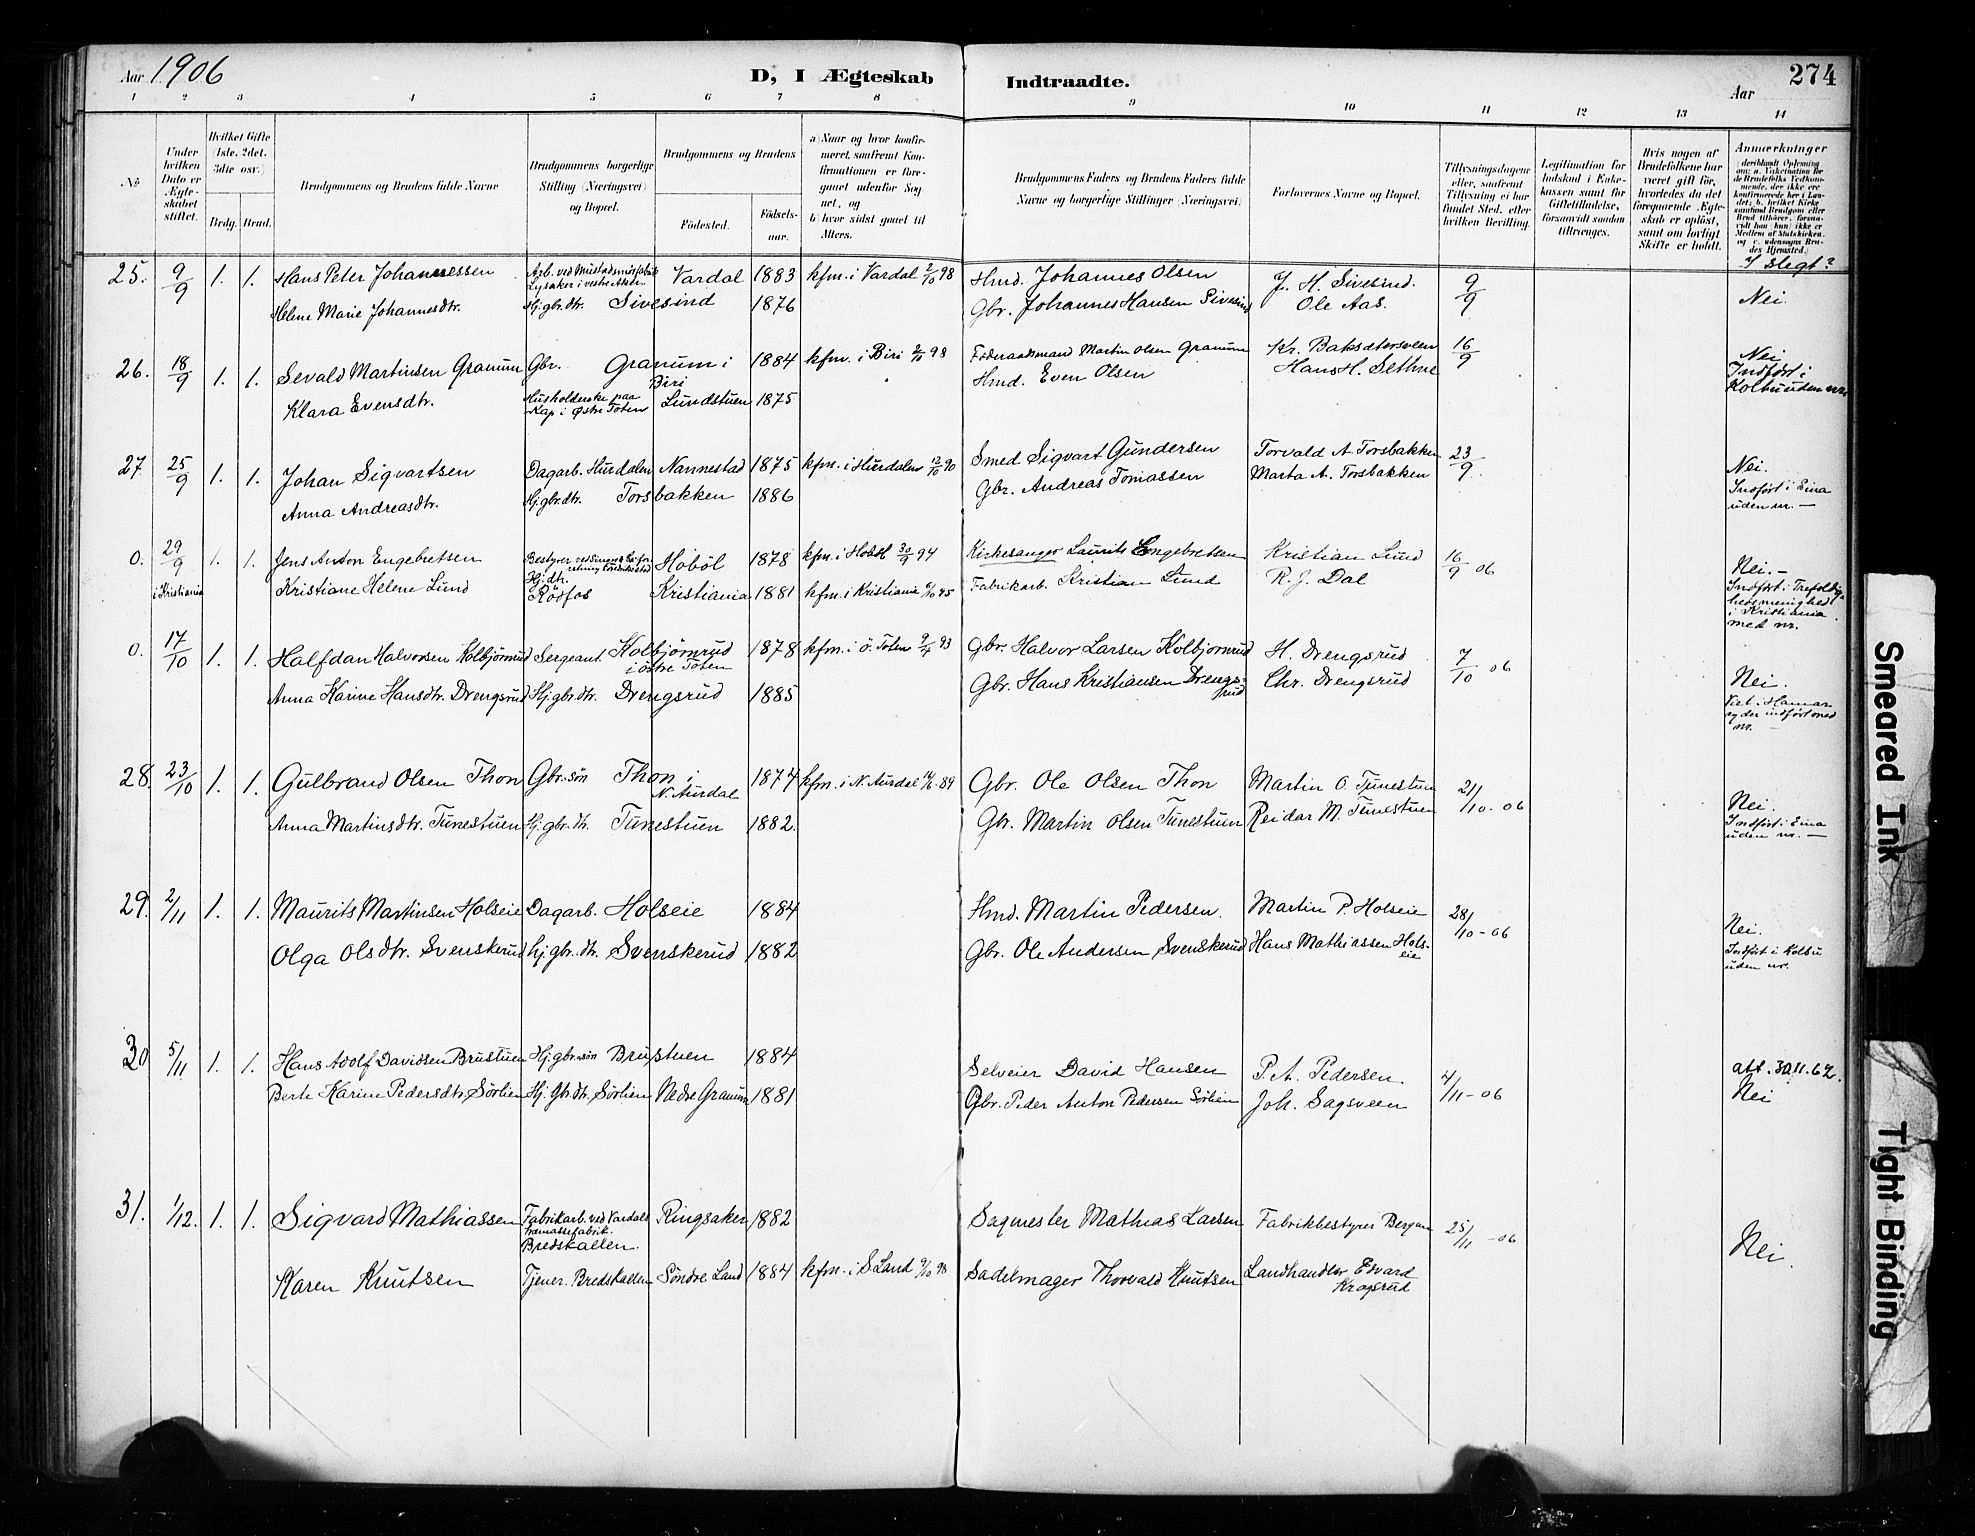 Aar 1906
D, I Ægteskab Indtraadte.
Aar 274
1 2 3 4 5 6 7 8 9 10 11 12 13 14
No
Under hvilken Dato er Ægteskabet stiftet.
Hvilket Gifte (1ste, 2det, 3dte osv.)
Brdg. Brud.
Brudgommens og Brudens fulde Navne
Brudgommens borgerlige Stilling (Næringsvei) og Bopæl.
Brudgommens og Brudens
Fødested.
Fødsels-aar.
a) Naar og hvor konfirmeret, saafremt Konfirmationen er foregaaet udenfor Sognet, og
b) hvor sidst gaaet til Alters.
Brudgommens Faders og Brudens Faders fulde Navne og borgerlige Stillinger (Næringsvei).
Forlovernes Navne og Bopæl.
Tillysningsdagene eller, saafremt Tillysning ei har fundet Sted, efter hvilken Bevilling.
Legitimation for Indskud i Enkekassen samt for Giftetilladelse, forsaavidt saadan tiltrænges.
Hvis nogen af Brudefolkene har været gift før, hvorledes da det foregaaende Ægteskab er opløst, samt om lovligt Skifte er holdt.
Anmærkninger
I slegt?
25. 9/9 1. 1. Hans Peter Johannessen Arb. ved Mustads Lysaker i vestre Aker Vardal 1883 kfm. i Vardal 2/10 98 Hmd. Johannes Olsen J. H. Sivesind. 9/9 Nei.
Helene Marie Johannesdtr. Hj. gbr. dtr. Sivesind 1876 Gbr. Johannes Hansen Sivesind Ole Aas.
26. 18/9 1. 1. Sevald Martinsen Granum Gbr. Granum i Biri 1884 kfm. i Biri 2/10 98 Føderaadsmand Martin Olsen Granum Kr. Baksætersveen 16/9 Nei
Klara Evensdtr. Husholderske paa Kap i Østre Toten Lundstuen 1875 Hmd. Even Olsen Hans H. Sethne Indført i Kolbu uden nr.
27. 25/9 1. 1. Johan Sigvartsen Dagarb. Hurdalen Nannestad 1875 kfm. i Hurdalen 12/10 90 Smed Sigvart Gundersen Torvald A Torsbakken 23/9. Nei.
Anna Andreasdtr. Hj. gbr. dtr. Torsbakken 1886 Gbr. Andreas Tomassen Marta A. Torsbakken Indført i Eina uden nr. —
0. 29/9 1. 1. Jens Anton Engebretsen Bestyrer ved Hobøl 1878 kfm. i Hobøl 30/9 94 Kirkesanger Laurits Engebretsen Kristian Lund 16/9 06 Nei. –
i Kristiania Kristiane Helene Lund Hj. dtr. Rødfos Kristiania 1881 kfm. i Kristiania 6/10 95 Fabrikarb. Kristian Lund R. J. Dal Indført i Trefoldighedsmenighed i Kristiania med nr.
0. 17/10 1. 1. Halfdan Halvorsen Kolbjørnrud Sergeant. Kolbjørnrud i østre Toten 1878 kfm. i ø. Toten 9/4 93 Gbr. Halvor Larsen Kolbjørnrud H. Drengsrud 7/10 06
Anna Karine Hansdtr. Drengsrud Hj. gbr. dtr. Drengsrud 1885 Gbr. Hans Kristiansen Drengsrud Chr. Drengsrud Nei.
Viet i Hamar og der indført med nr.
28. 23/10 1. 1. Gulbrand Olsen Thon Gbr. søn Thon i N. Aurdal 1874 kfm. i N. Aurdal 89 Gbr. Ole Olsen Thon Martin O. Tunestuen 21/10 - 06 Nei.
Anna Martinsdtr. Tunestuen Hj. gbr. dtr. Tunestuen 1882. Gbr. Martin Olsen Tunestuen Reidar M. Tunestuen Indført i Eina uden nr. —
29. 2/11 1. 1. Maurits Martinsen Holseie Dagarb. Holseie 1884 Hmd. Martin Pedersen. Martin P. Holseie 28/10 - 06 Nei.
Olga Olsdtr. Svenskerud hj. gbr. dtr. Svenskerud 1882 Gbr. Ole Andersen Svenskerud Hans Mathiassen Holseie Indført i Kolbu uden nr.
30 5/11 1. 1. Hans Adolf Davidsen Brustuen Hj. gbr. søn Brustuen 1884 Selveier David Hansen P. A. Pedersen. 4/11 - 06 att. 30.11.62.
Berte Karine Pedersdtr. Sørlien Hj. Gbr. dtr. Sørlien Nedre Granum 1881 Gbr. Peder Anton Pedersen Sørlien Joh. Sagsveen Nei
31. 1/12. 1. 1. Sigvard Mathiassen Fabrikarb. ved Vardals Træmassefabrik. Bredskallen. Ringsaker 1882 Sagmester Mathias Larsen Fabrikbestyrer Bergan 25/11 - 06
Karen Knutsen Tjener. Bredskallen Søndre Land 1884 kfm. i S Land 9/10 98 Sadelmager Thorvald Knutsen Landhandler Edvard Krogsrud Nei.
Smeared Ink
Tight Binding